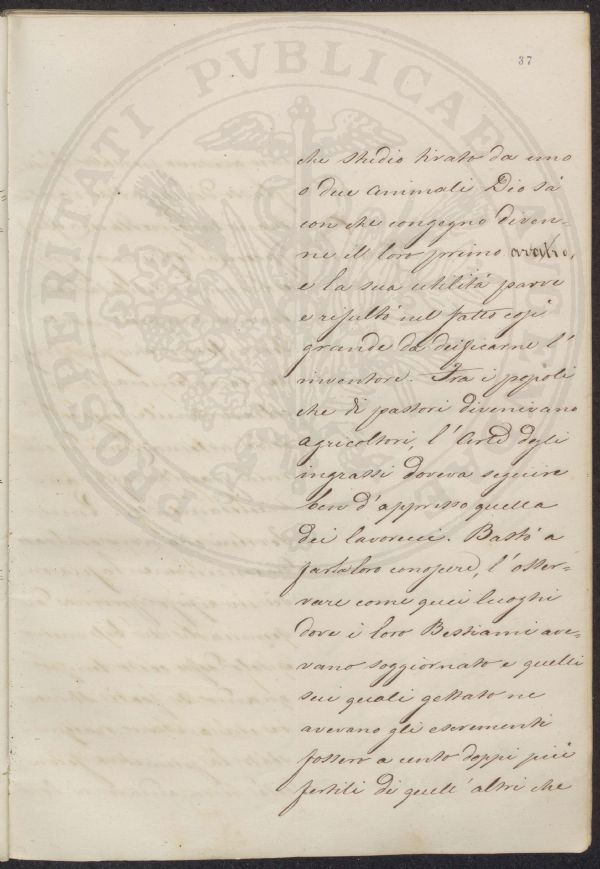 37
PROSPERITATI PVBLICAE AVGENDAE
che studio tirato da uno
o due animali Dio sà
con che congegno diven-
ne il loro primo aratro,
e la sua utilità parve
e resultò nel fatto così
grande da deificarne l'
inventore. Fra i popoli
che di pastori divenivano
agricoltori, l'Arte degli
ingrassi doveva seguire
ben d'appresso quella
dei lavorecci. Bastò a
farla loro conoscere, l'osser-
vare come quei luoghi
dove i loro Bestiami ave-
vano soggiornato e quelli
sui quali gettato ne
avevano gli escrementi
fossero a cento doppi più
fertili di quell'altri che